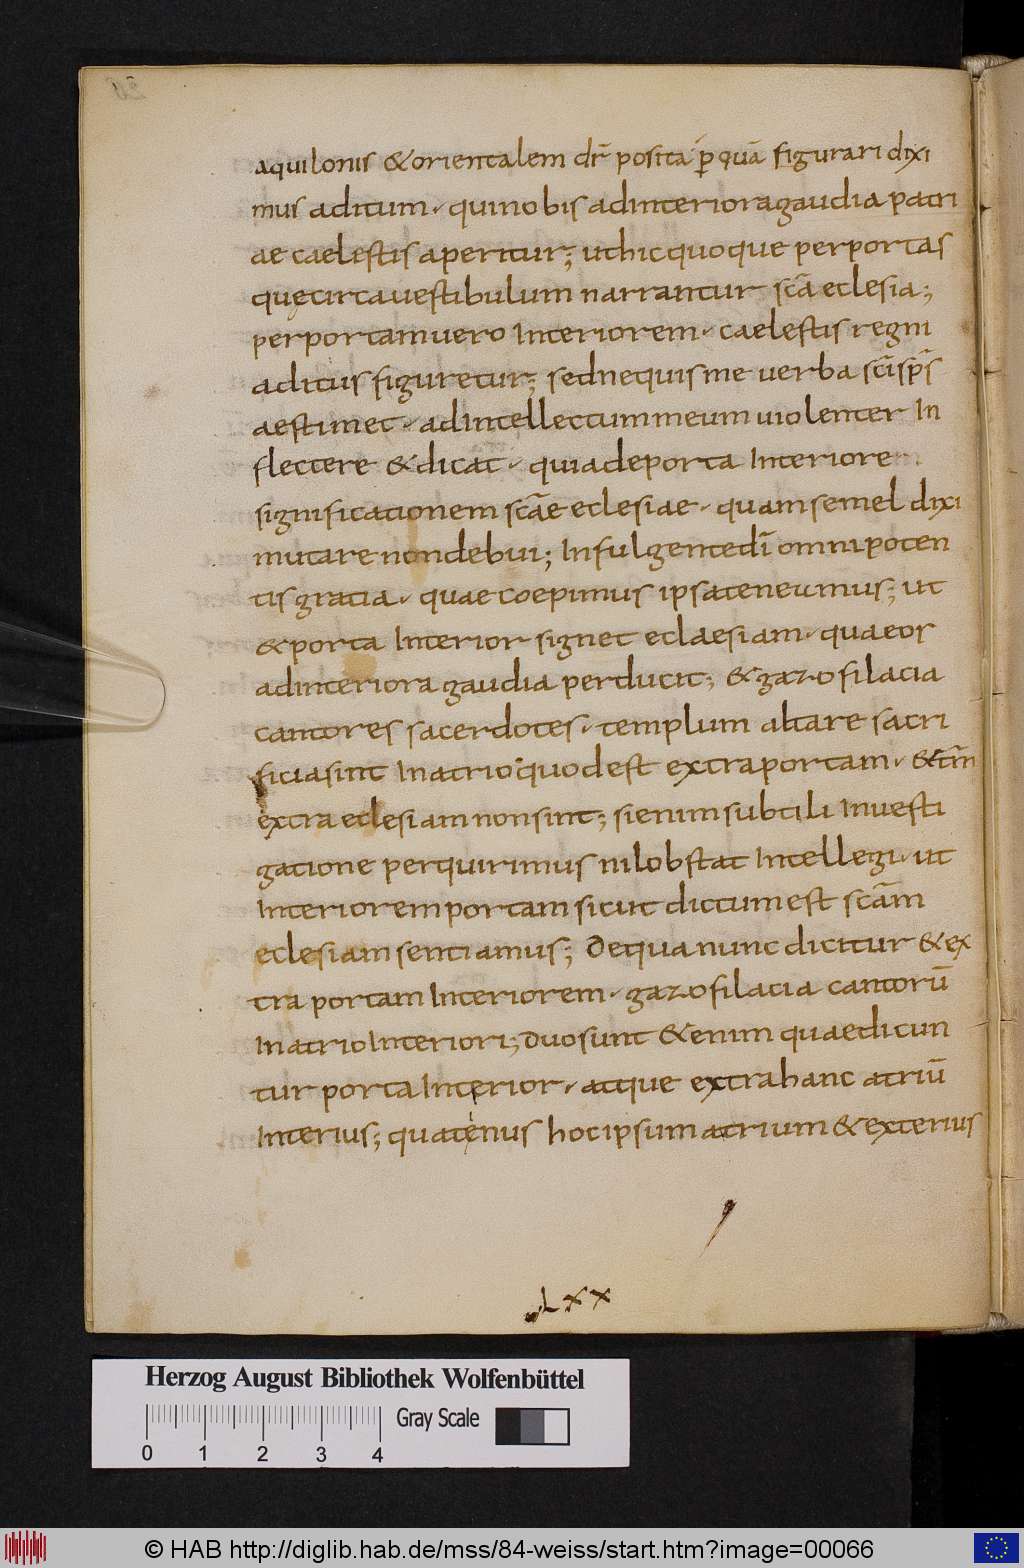 aquilonis & orientalem dr̄ posita p̱ quā figurari dixi
mus aditum. qui nobis ad interiora gaudia patri
ae caelestis aperitur; ut hic quoque per portas
quę circa uestibulum narrantur scā eclesia;
per portam uero Interiorem. caelestis regni
aditus figuretur; sed nequis me uerba scī sp̄s
aestimet. ad intellectum meum uiolenter In
flectere & dicat. quia de porta Interiore
significationem scāe eclesiae. quam semel dixi
mutare non debui; In fulgente dī omnipoten
tis gratia. quae coepimus ipsa teneamus; ut
& porta Interior signet eclaesiam. quae os
ad interiora gaudia perducit; & gazofilacia
cantores sacerdotes. templum altare sacri
ficia sint In atrio quod est extra portam. & tm̄
extra eclesiam non sint; si enim subtili Inuesti
gatione perquirimus nil obstat Intellegi. ut
Interiorem portam sicut dictum est scām
eclesiam sentiamus; De qua nunc dicitur & ex
tra portam Interiorem. gazofilacia cantorū
In atrio Interiori; Duo sunt & enim quae dicun
tur porta Interior. atque extra hanc atriū
Interius; quatenus hoc ipsum atrium & exterius
LXX
Herzog August Bibliothek Wolfenbüttel
Gray Scale
0 1 2 3 4
© HAB http://diglib.hab.de/mss/84-weiss/start.htm?image=00066